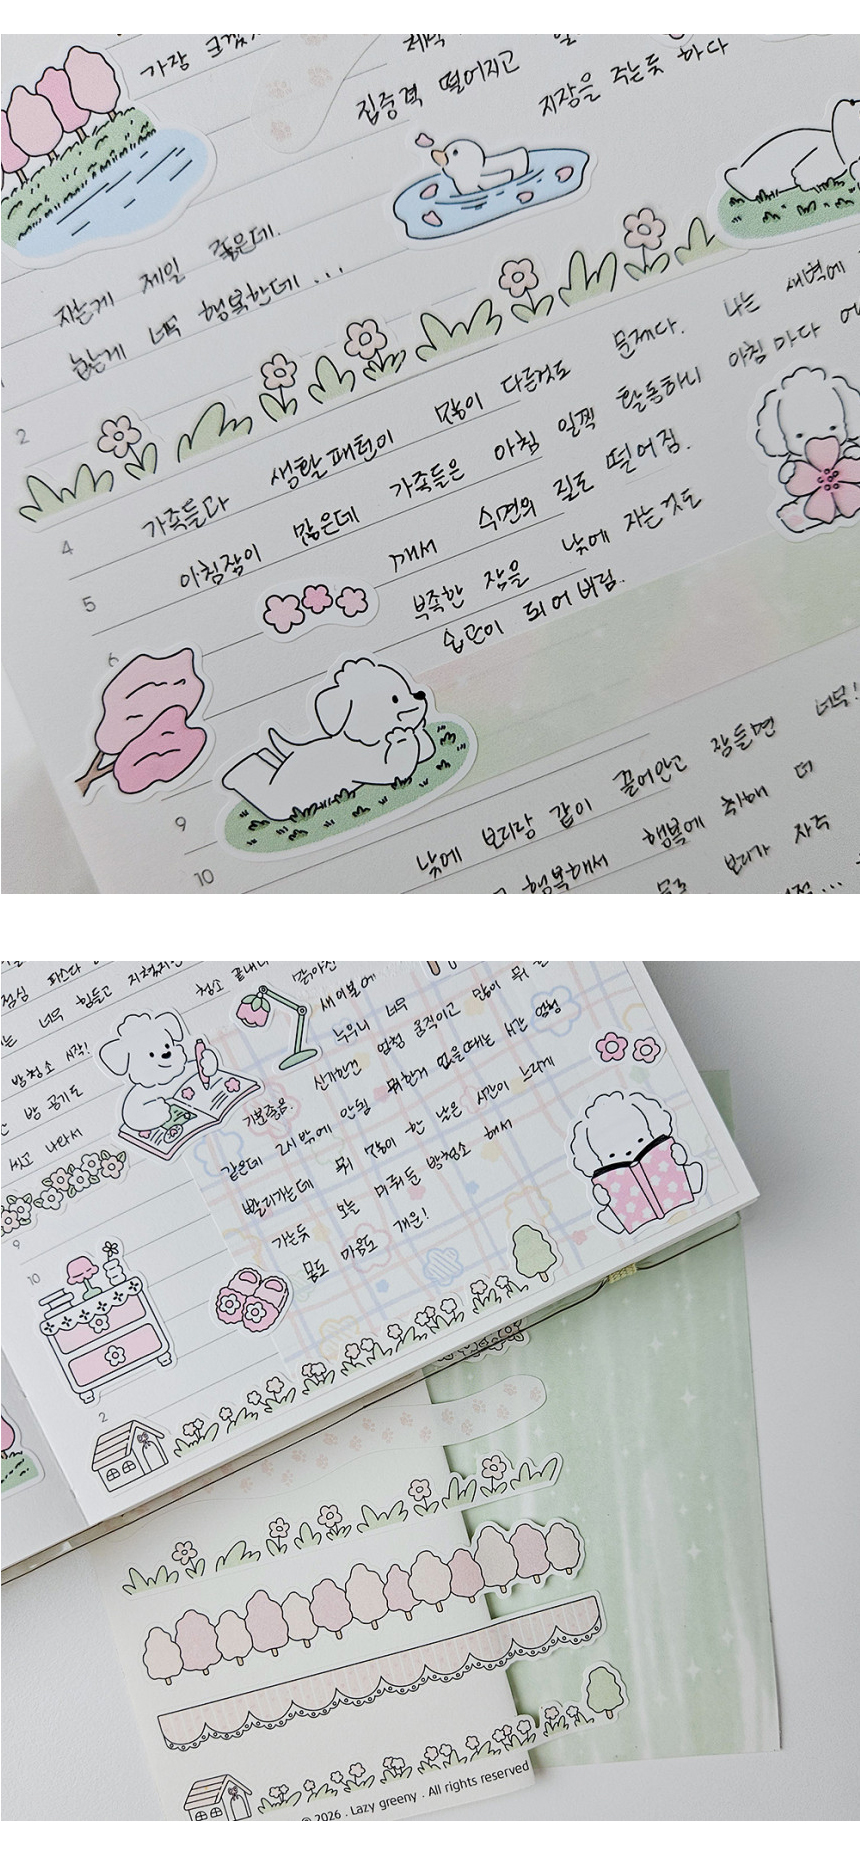 가장
집중력 떨어지고
지장을 주는듯 하다
자는게 제일 좋은데.
눕는게 너무 행복한데 ...
2
가족들과 생활패턴이 많이 다른것도 문제다. 나는 새벽에
4
아침잠이 많은데 가족들은 아침 일찍 활동하니 아침마다
5
깨서 수면의 질도 떨어짐.
6
부족한 잠을 낮에 자는것도
습관이 되어버림.
9
낮에 보리랑 같이 끌어안고 잠들면 너무!
10
행복해서 행복에 취해 더
보리가 자주
점심 파스타
너무 힘들고
방청소 시작!
방 공기도
씻고 나와서
청소 끝내니
새이불에
누우니 너무
기분좋음. 신기한건 엄청 움직이고 많이 뭐
같은데 2시밖에 안됨 뭐한거 없을때는 시간 엄청
빨리가는데 뭐 많이 한 날은 시간이 느리게
가는듯 오늘 미뤄둔 방청소 해서
몸도 마음도 개운!
9
10
2
© 2026 . Lazy greeny . All rights reserved